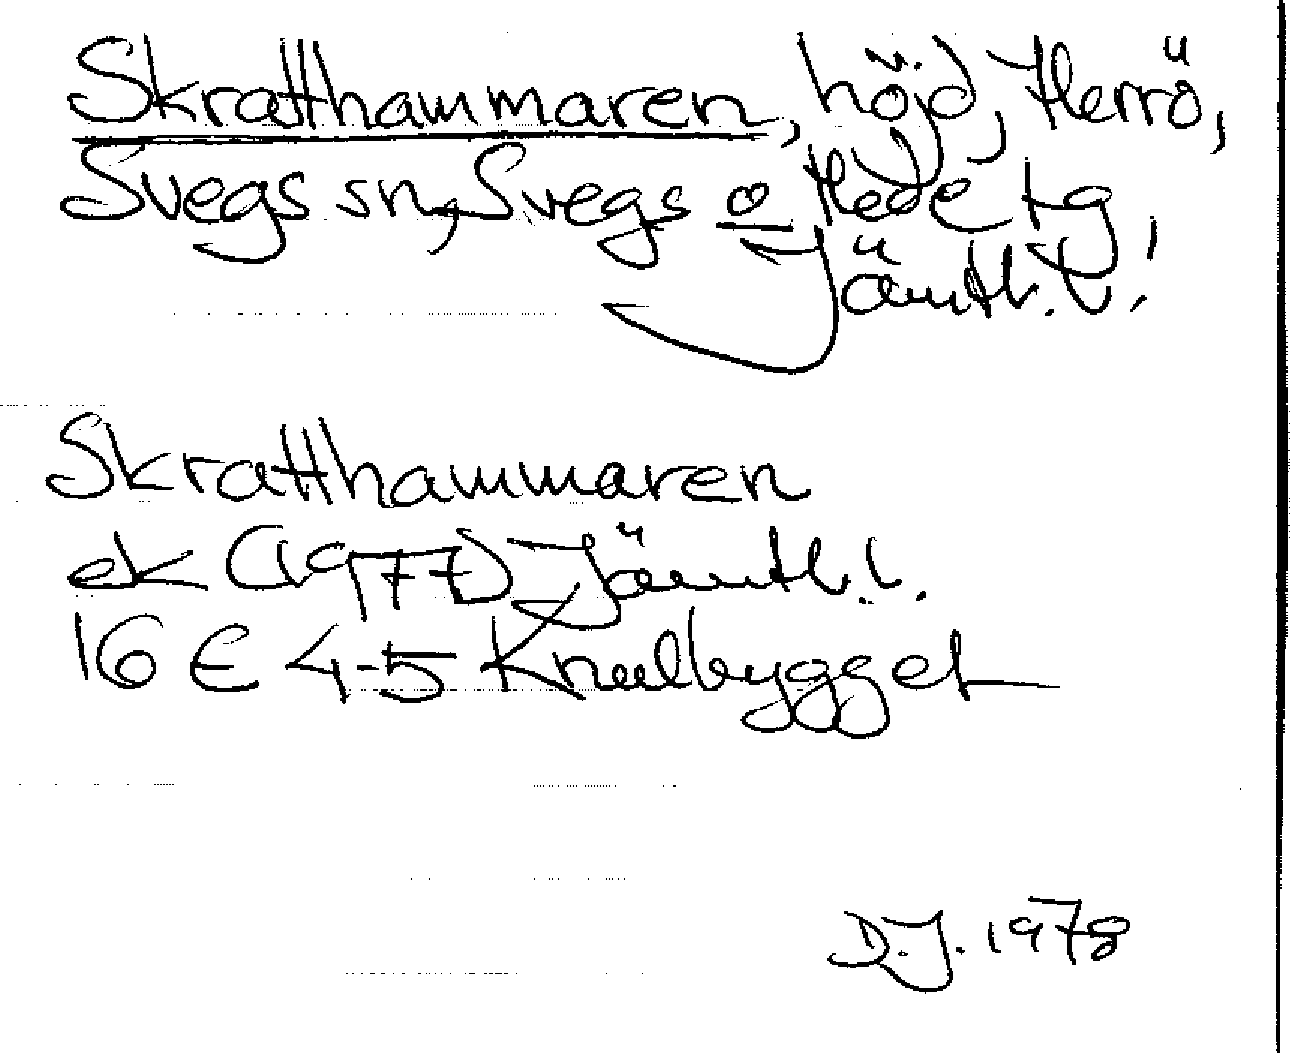 Skratthammaren, höjd, Herrö,
Svegs sn, Svegs o Hede tg,
Jämtl. l.
Skratthammaren
ek (1977) Jämtl. l.
16 E 4-5 Knulbygget
D.J. 1978